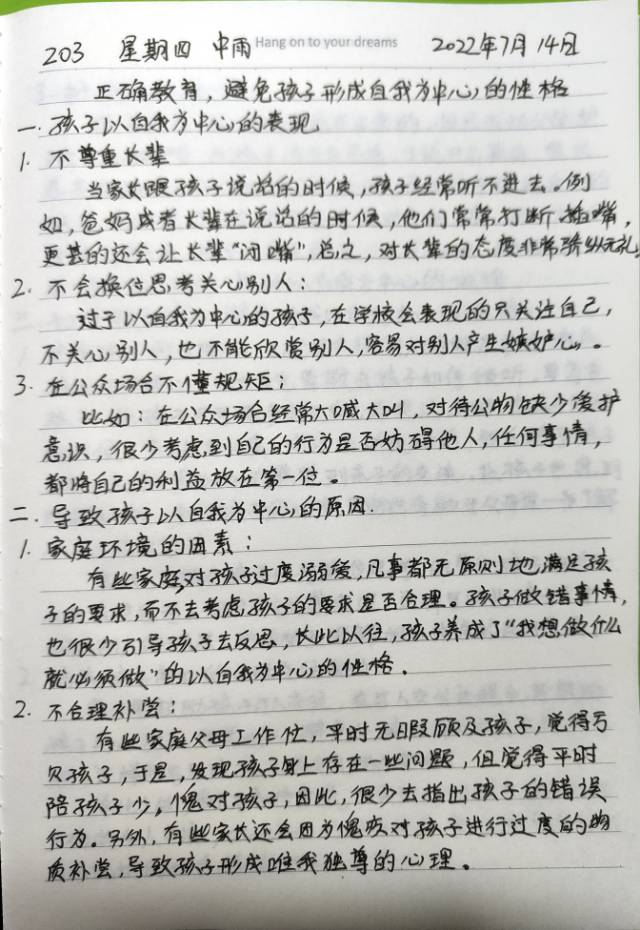 203 星期四 中雨 Hang on to your dreams 2022年7月14日
正确教育，避免孩子形成自我为中心的性格
一.孩子以自我为中心的表现
1. 不尊重长辈
当家长跟孩子说话的时候，孩子经常听不进去。例
如，爸妈或者长辈在说话的时候，他们常常打断插嘴，
更甚的还会让长辈“闭嘴”，总之，对长辈的态度非常骄纵无礼。
2. 不会换位思考关心别人：
过于以自我为中心的孩子，在学校会表现的只关注自己，
不关心别人，也不能欣赏别人，容易对别人产生嫉妒心。
3. 在公众场合不懂规矩；
比如：在公众场合经常大喊大叫，对待公物缺少爱护
意识，很少考虑到自己的行为是否妨碍他人，任何事情，
都将自己的利益放在第一位。
二.导致孩子以自我为中心的原因.
1. 家庭环境的因素：
有些家庭对孩子过度溺爱，凡事都无原则地满足孩
子的要求，而不去考虑孩子的要求是否合理。孩子做错事情，
也很少引导孩子去反思，长此以往，孩子养成了“我想做什么
就必须做”的以自我为中心的性格.
2. 不合理补偿：
有些家庭父母工作忙，平时无暇顾及孩子，觉得亏
欠孩子，于是，发现孩子身上存在一些问题，但觉得平时
陪孩子少，愧对孩子，因此，很少去指出孩子的错误
行为。另外，有些家长还会因为愧疚对孩子进行过度的物
质补偿，导致孩子形成唯我独尊的心理。